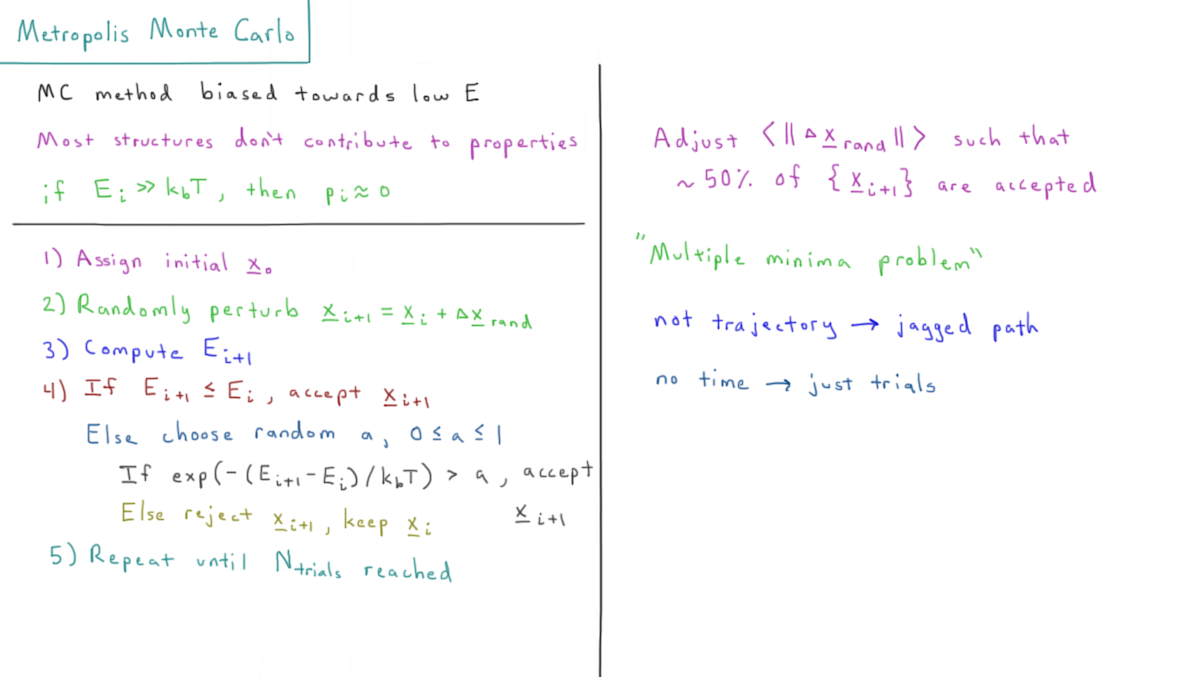 Metropolis Monte Carlo
MC method biased towards low E
Most structures don't contribute to properties
if E_i >> k_bT, then p_i ≈ 0
1) Assign initial x_0
2) Randomly perturb x_{i+1} = x_i + Δx_rand
3) Compute E_{i+1}
4) If E_{i+1} ≤ E_i, accept x_{i+1}
Else choose random a, 0 ≤ a ≤ 1
If exp(-(E_{i+1} - E_i)/k_bT) > a, accept
x_{i+1}
Else reject x_{i+1}, keep x_i
5) Repeat until N_trials reached
Adjust <||Δx_rand||> such that
~50% of {x_{i+1}} are accepted
"Multiple minima problem"
not trajectory → jagged path
no time → just trials